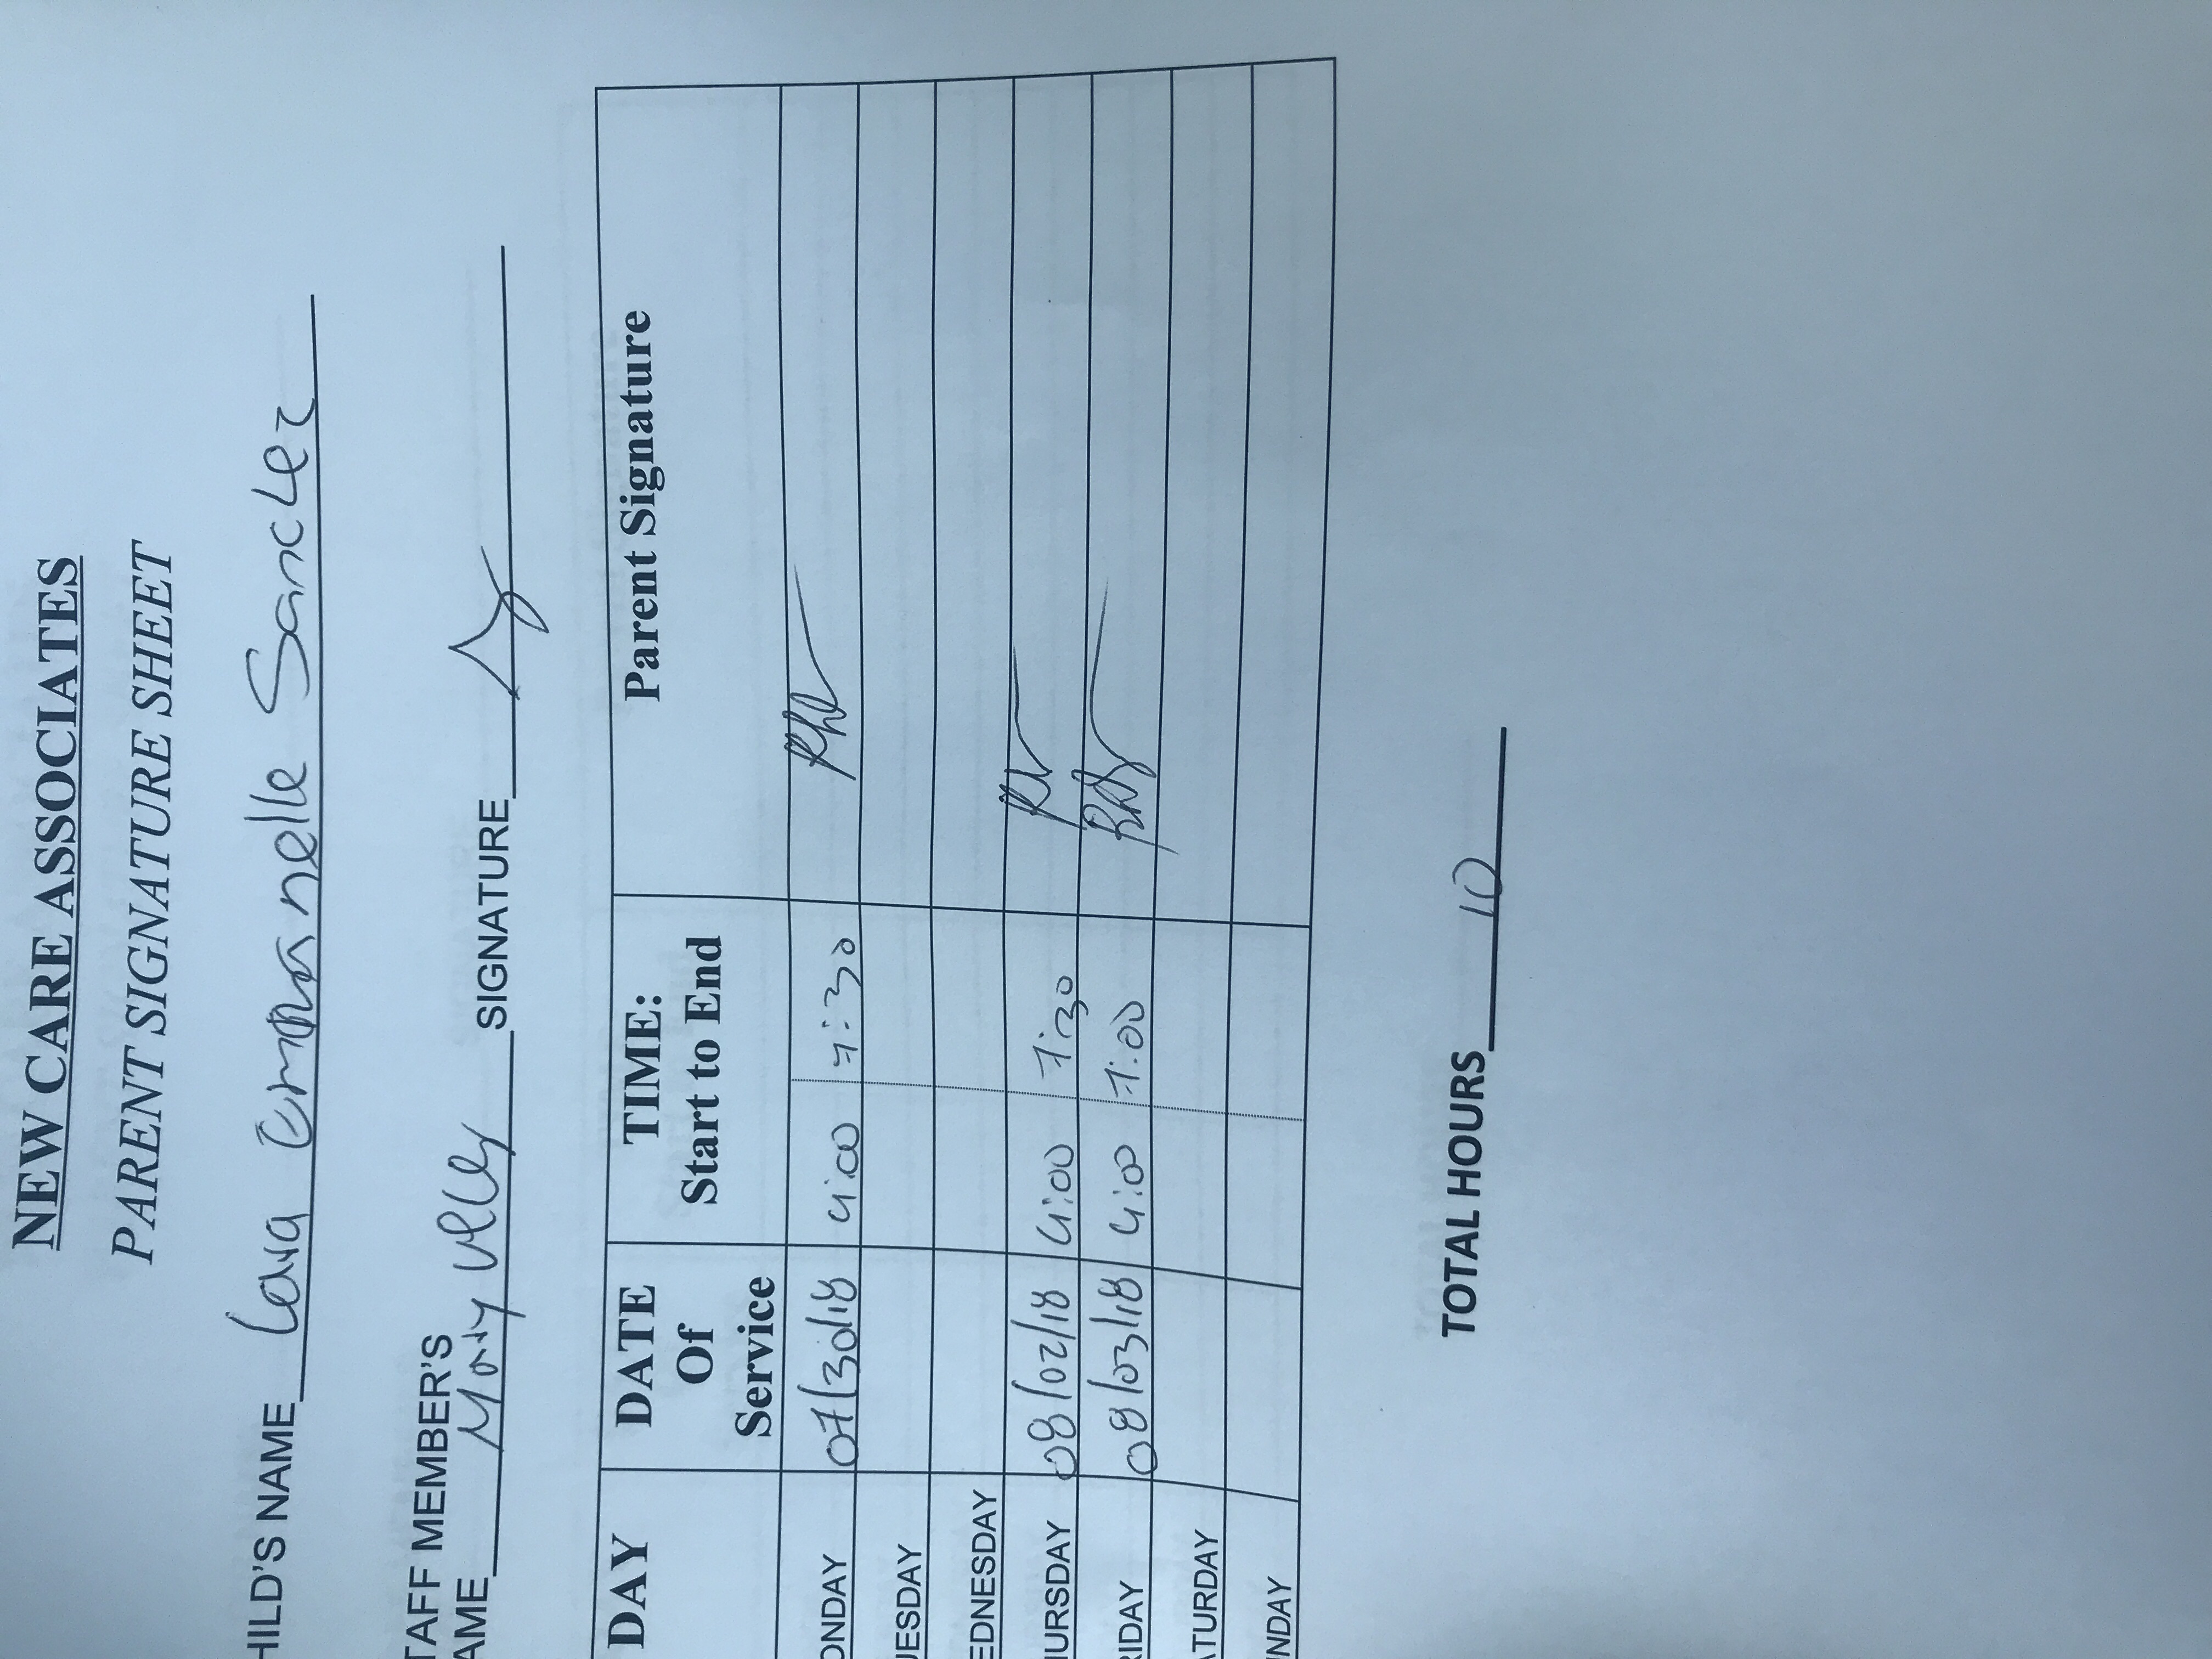 NEW CARE ASSOCIATES
PARENT SIGNATURE SHEET
HILD'S NAME Lara Emmanelle Sanchez
TAFF MEMBER'S
AME Mary SIGNATURE
DAY DATE Of Service TIME: Start to End Parent Signature
ONDAY 07/30/18 4:00 7:30
UESDAY
EDNESDAY
HURSDAY 08/02/18 4:00 7:30
RIDAY 08/03/18 4:00 7:00
ATURDAY
NDAY
TOTAL HOURS 10